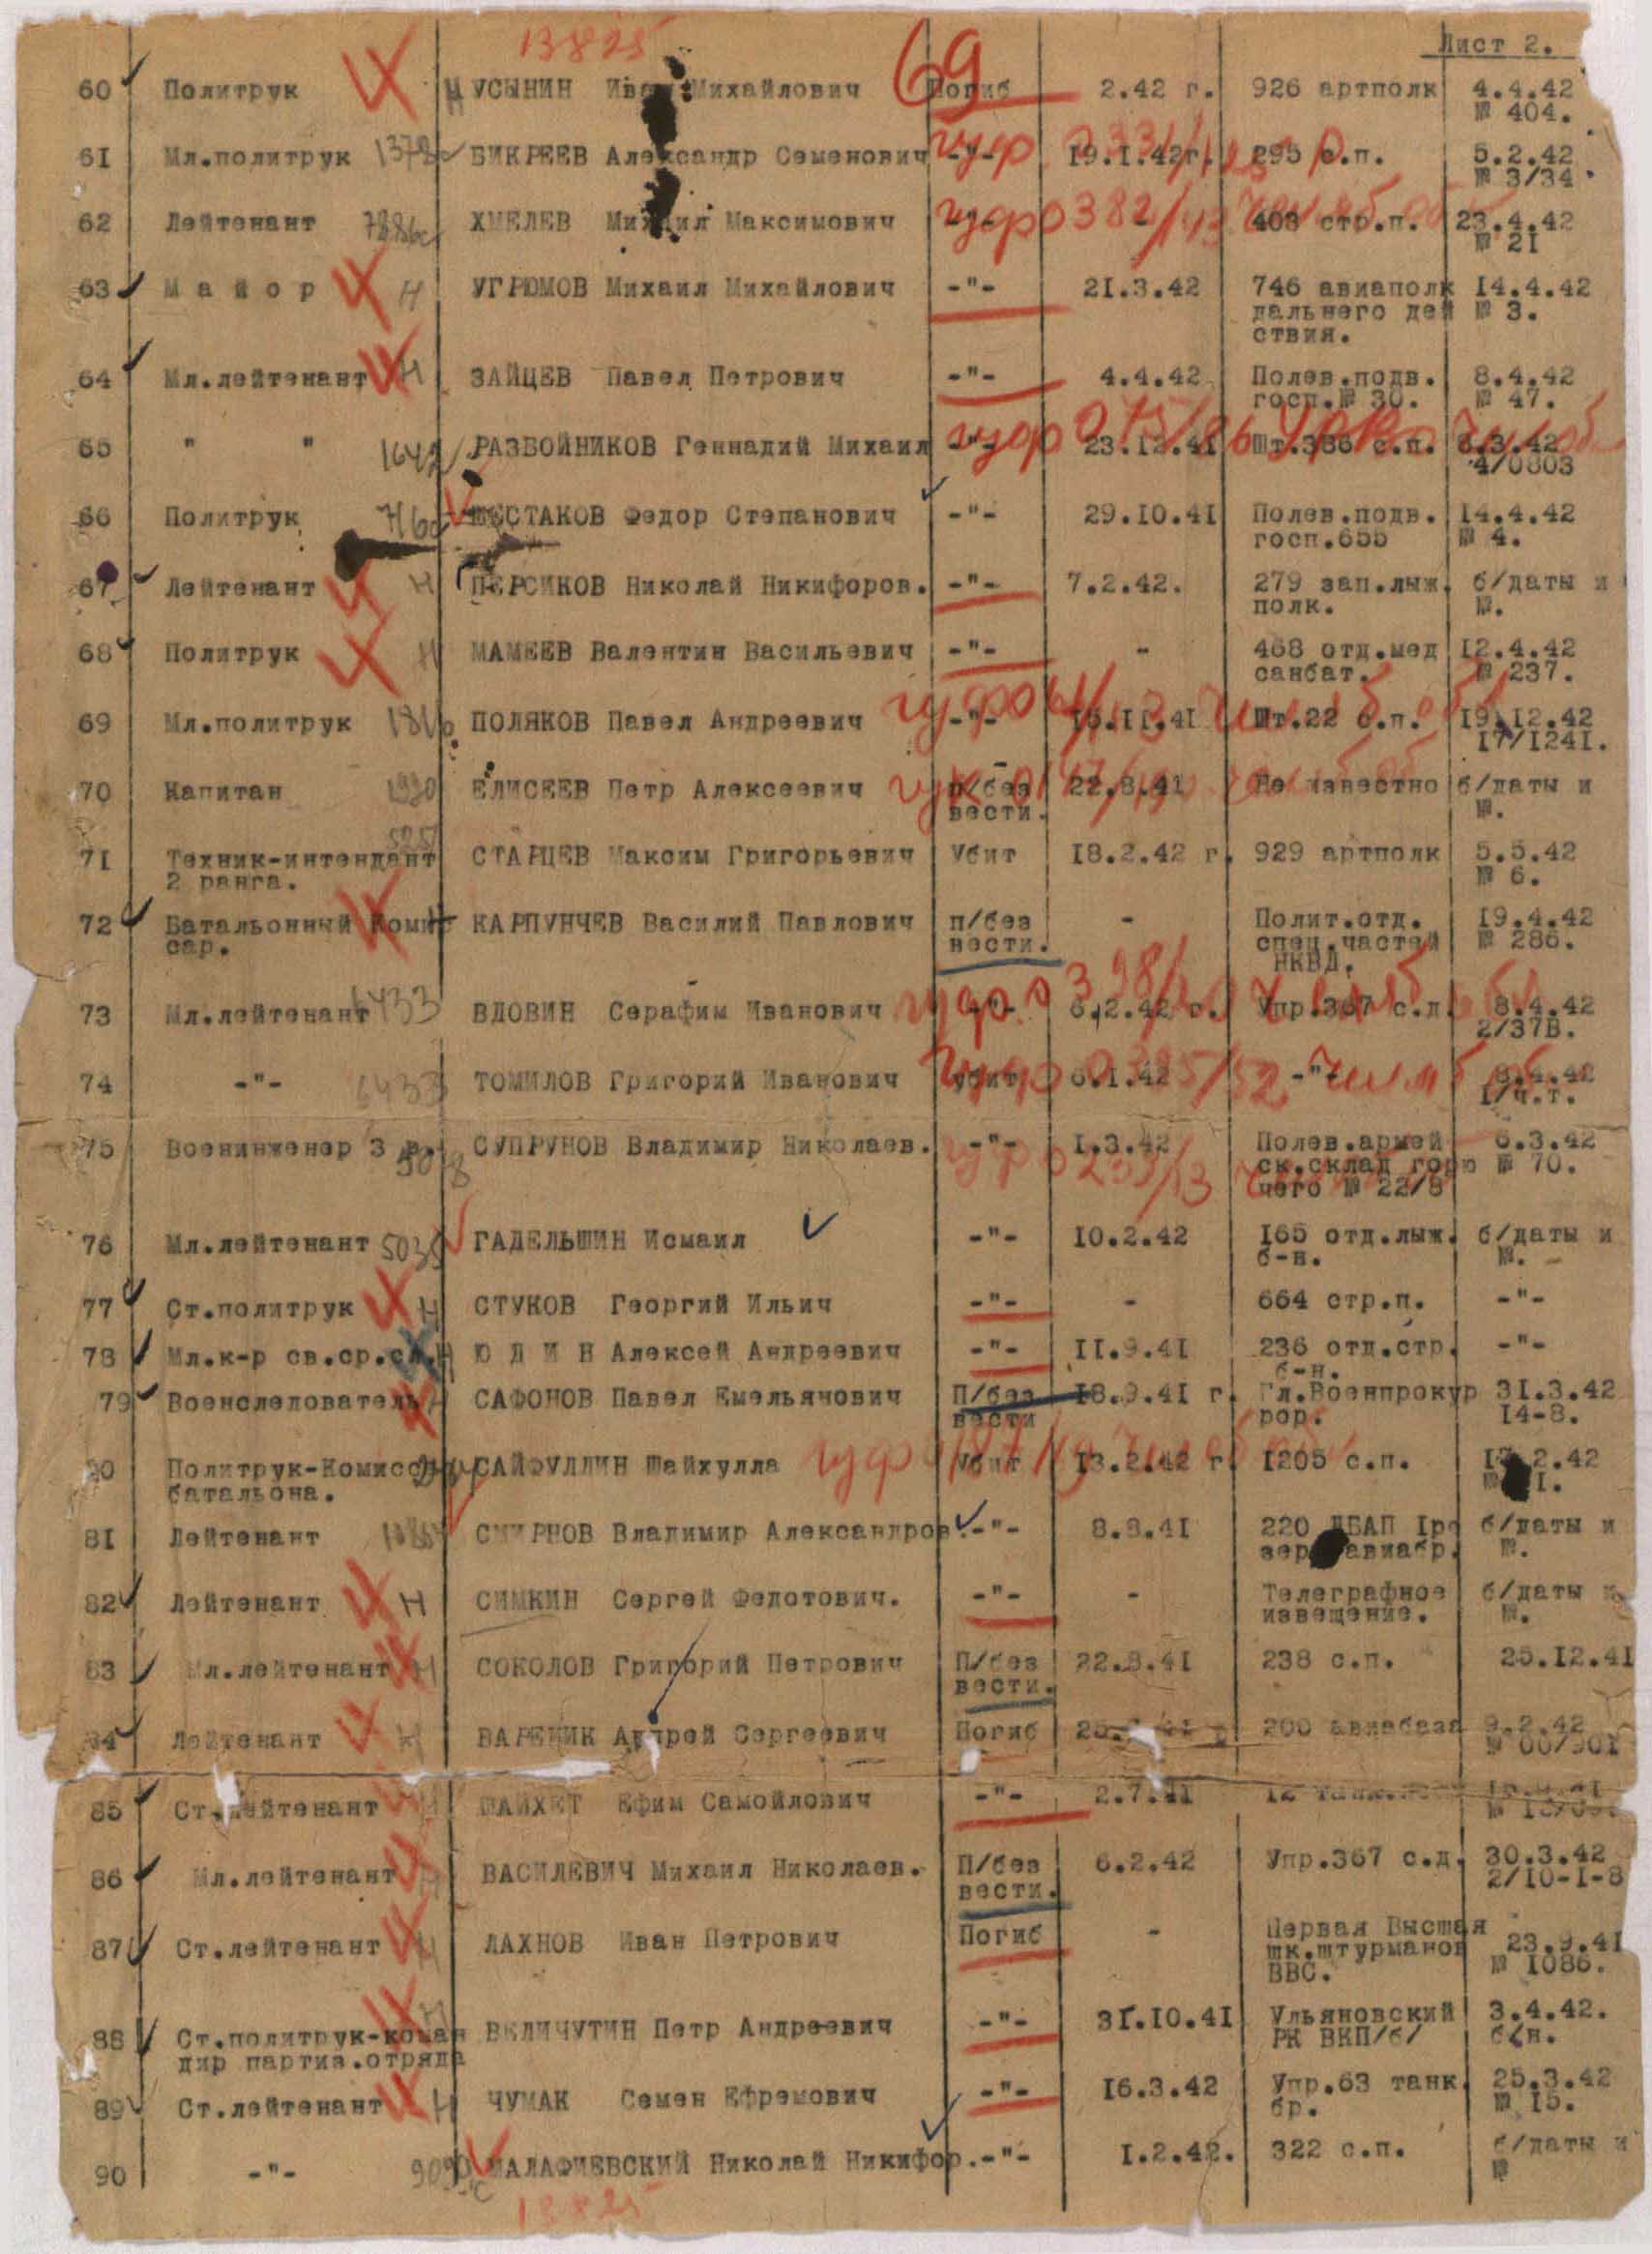 13825
69
Лист 2.
60 Политрук Ч Н УСЫНИН Иван Михайлович Погиб 2.42 г. 926 артполк 4.4.42
№ 404.
61 Мл.политрук БИКРЕЕВ Александр Семенович -"- 19.1.42г. 295 с.п. 5.2.42
№ 3/34
62 Лейтенант ХМЕЛЕВ Михаил Максимович 403 стр.п. 23.4.42
№ 21
63 Майор Ч Н УГРЮМОВ Михаил Михайлович -"- 21.3.42 746 авиаполк 14.4.42
дальнего дей № 3.
ствия.
64 Мл.лейтенант Ч Н ЗАЙЦЕВ Павел Петрович -"- 4.4.42 Полев.подв. 8.4.42
госп.№ 30. № 47.
65 " " РАЗБОЙНИКОВ Геннадий Михаил -"- 23.12.41 Шт.386 с.п. 8.3.42
4/0803
66 Политрук ШЕСТАКОВ Федор Степанович -"- 29.10.41 Полев.подв. 14.4.42
госп.655 № 4.
67 Лейтенант Ч Н ПЕРСИКОВ Николай Никифоров. -"- 7.2.42. 279 зап.лыж. б/даты и
полк. №.
68 Политрук Ч Н МАМЕЕВ Валентин Васильевич -"- - 468 отд.мед 12.4.42
санбат. № 237.
69 Мл.политрук ПОЛЯКОВ Павел Андреевич -"- 15.11.41 Шт.22 с.п. 19.12.42
17/1241.
70 Капитан ЕЛИСЕЕВ Петр Алексеевич п/без 22.8.41 Не известно б/даты и
вести. №.
71 Техник-интендант СТАРЦЕВ Максим Григорьевич Убит 18.2.42 г. 929 артполк 5.5.42
2 ранга. № 6.
72 Батальонный Комис Ч Н КАРПУНЧЕВ Василий Павлович п/без - Полит.отд. 19.4.42
сар. вести. спец.частей № 286.
НКВД.
73 Мл.лейтенант 6433 ВДОВИН Серафим Иванович -"- 6.2.42 г. Упр.367 с.д. 8.4.42
2/37В.
74 -"- 6433 ТОМИЛОВ Григорий Иванович убит 6.1.42 -"- 8.4.42
1/ч.т.
75 Военинженер 3 р. СУПРУНОВ Владимир Николаев. -"- 1.3.42 Полев.армей 6.3.42
ск.склад горю № 70.
чего № 22/8
76 Мл.лейтенант ГАДЕЛЬШИН Исмаил -"- 10.2.42 165 отд.лыж. б/даты и
б-н. №. -
77 Ст.политрук Ч Н СТУКОВ Георгий Ильич -"- - 664 стр.п. -"-
78 Мл.к-р св.ср.сл. Н ЮДИН Алексей Андреевич -"- 11.9.41 236 отд.стр. -"-
б-н.
79 Военследователь САФОНОВ Павел Емельянович П/без 18.9.41 г. Гл.Военпрокур 31.3.42
вести рор. 14-8.
80 Политрук-Комиссар САЙФУЛЛИН Шайхулла Убит 13.2.42 г. 1205 с.п. 2.42
батальона.
81 Лейтенант СМИРНОВ Владимир Александров. -"- 8.8.41 220 б/даты и
авиабр. №.
82 Лейтенант Ч Н СИМКИН Сергей Федотович. -"- - Телеграфное б/даты и
извещение. №.
83 Мл.лейтенант Ч Н СОКОЛОВ Григорий Петрович П/без 22.8.41 238 с.п. 25.12.41
вести.
84 Лейтенант Ч Н ВАРЕНИК Андрей Сергеевич Погиб 200 авиабаза 9.2.42
85 Ст.лейтенант Ч Н ШАЙХЕТ Ефим Самойлович -"- 2.7.41 12
86 Мл.лейтенант Ч Н ВАСИЛЕВИЧ Михаил Николаев. П/без 6.2.42 Упр.367 с.д. 30.3.42
вести. 2/10-1-8
87 Ст.лейтенант Ч Н ЛАХНОВ Иван Петрович Погиб - Первая Высшая 23.9.41
шк.штурманов № 1086.
ВВС.
88 Ст.политрук-коман Ч Н ВЕЛИЧУТИН Петр Андреевич -"- 31.10.41 Ульяновский 3.4.42.
дир партиз.отряда РК ВКП/б/ б/н.
89 Ст.лейтенант Ч Н ЧУМАК Семен Ефремович -"- 16.3.42 Упр.63 танк. 25.3.42
бр. № 15.
90 -"- МАЛАФИЕВСКИЙ Николай Никифор. -"- 1.2.42. 322 с.п. б/даты и
№
13825